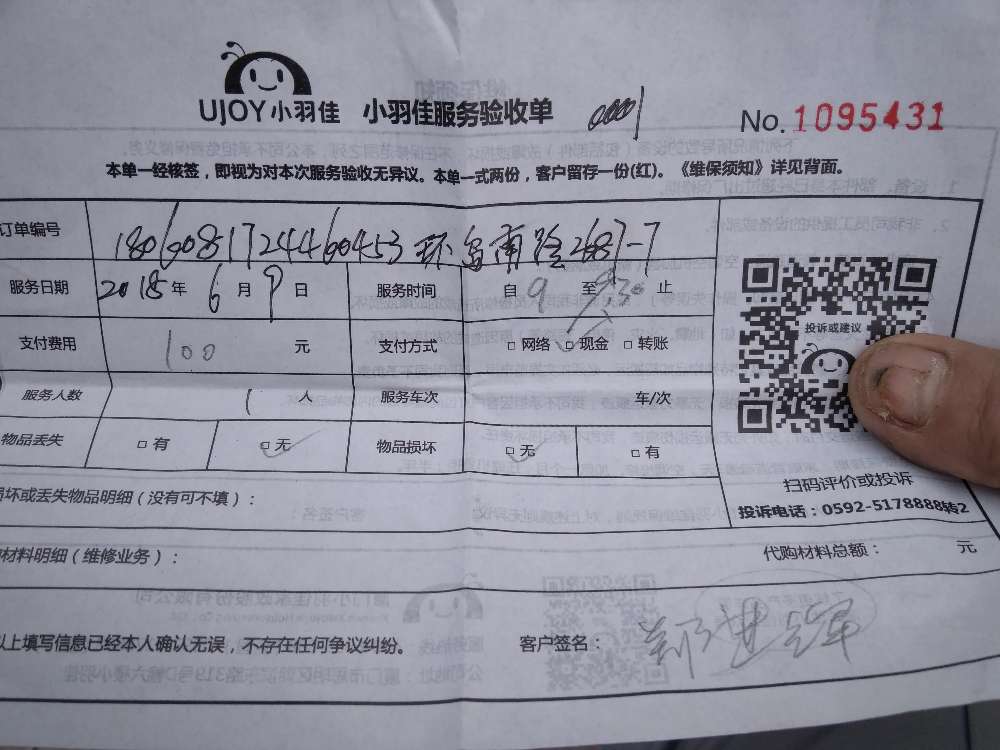 UJOY小羽佳 小羽佳服务验收单 0001 No.1095431
本单一经核签，即视为对本次服务验收无异议。本单一式两份，客户留存一份(红)。《维保须知》详见背面。
订单编号 1806081724460453 环岛南路2687-7
服务日期 2018年6月9日 服务时间 自9至9:30止
支付费用 100元 支付方式 □网络 □现金 □转账
服务人数 1人 服务车次 车/次
物品丢失 □有 □无 物品损坏 □无 □有
投诉或建议
扫码评价或投诉
投诉电话：0592-5178888转2
损坏或丢失物品明细（没有可不填）：
材料明细（维修业务）： 代购材料总额： 元
以上填写信息已经本人确认无误，不存在任何争议纠纷。 客户签名：